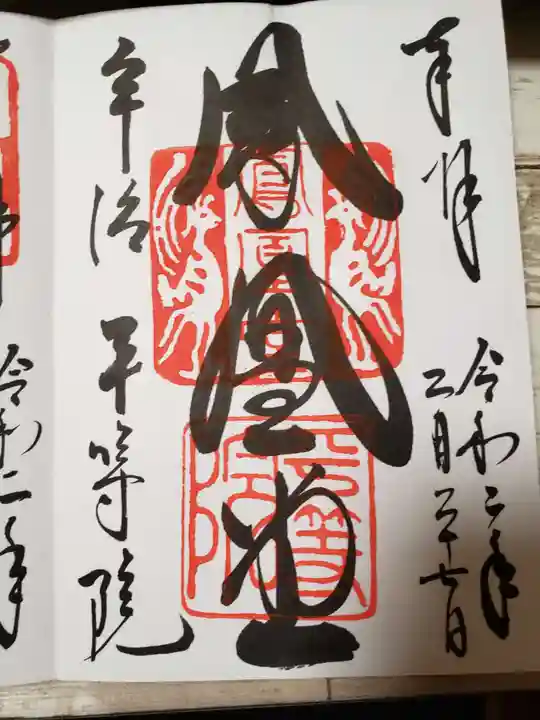 奉拝
令和二年
二月二十七日
鳳凰堂
鳳凰堂
平等院
宇治 平等院
令和二年